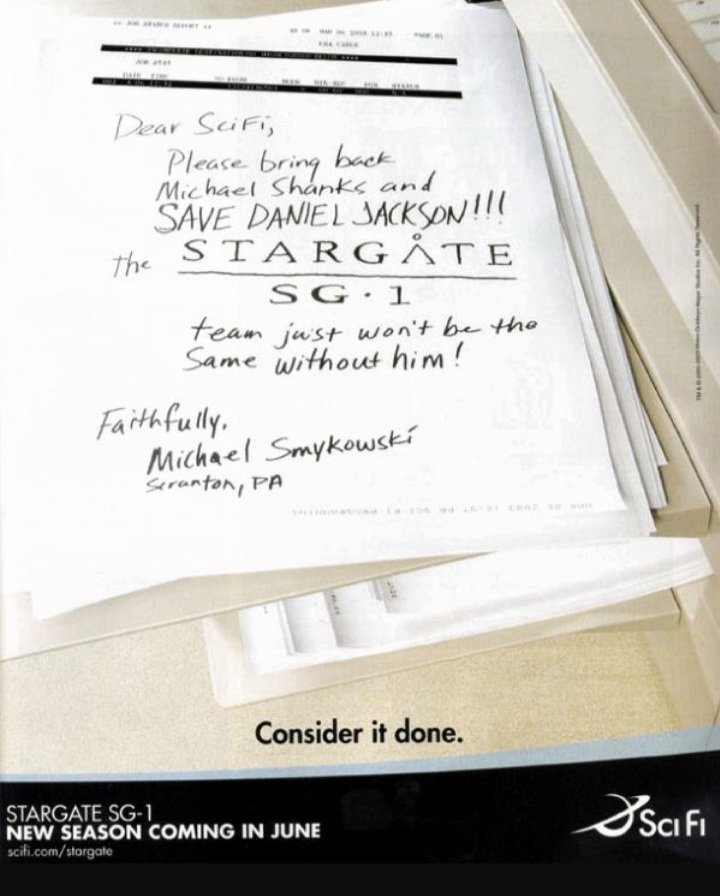 ** JOB STATUS REPORT **
PAGE.01
USA CABLE
Dear SciFi,
Please bring back
Michael Shanks and
SAVE DANIEL JACKSON!!!
the STARGATE
SG·1
team just won't be the
Same without him!
Faithfully,
Michael Smykowski
Scranton, PA
Consider it done.
STARGATE SG-1
NEW SEASON COMING IN JUNE
scifi.com/stargate
SCI FI